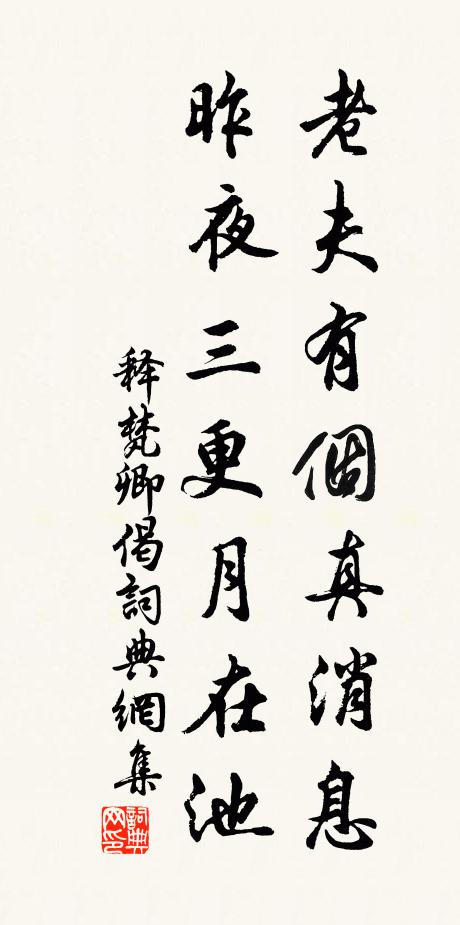 老夫有個真消息
昨夜三更月在池
释梵卿偈詞典網集
詞典网印